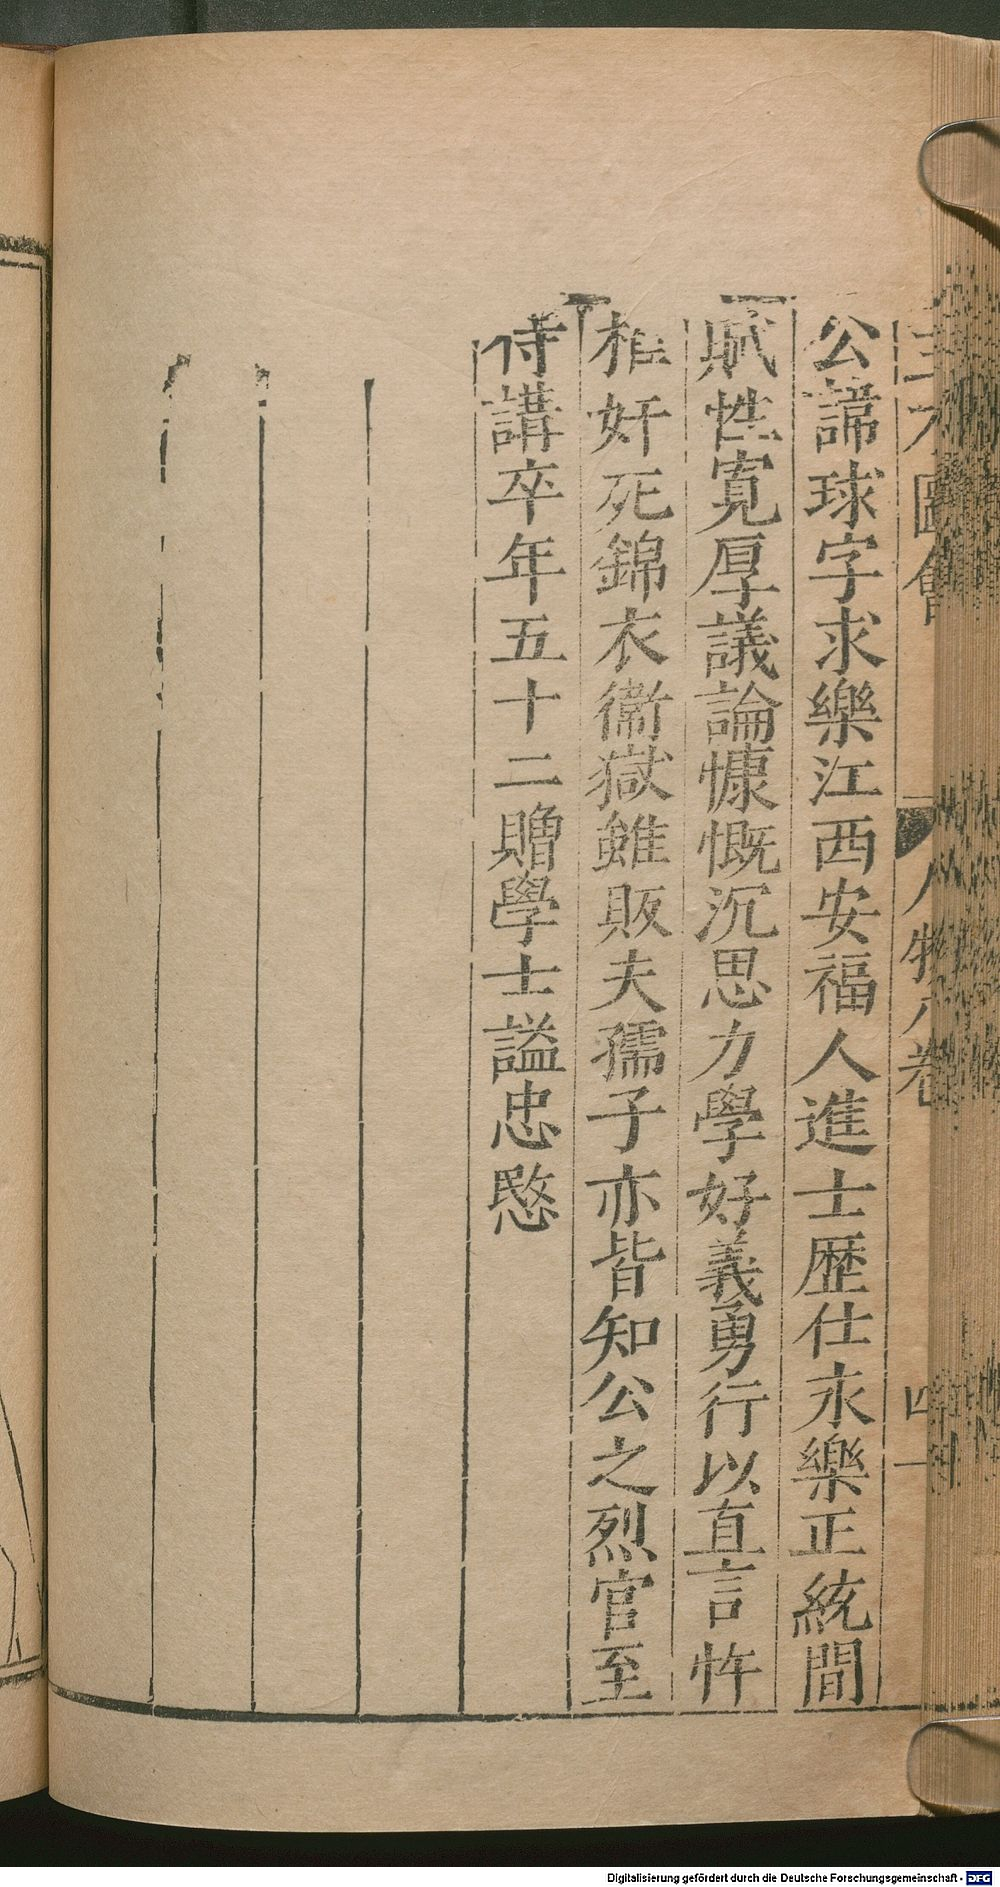 三才圖會 人物八卷 四十一
公諦球字求樂江西安福人進士歴仕永樂正統間
賦性寬厚議論慷慨沉思力學好義勇行以直言忤
權奸死錦衣衞獄雖販夫孺子亦皆知公之烈官至
侍講卒年五十二贈學士謚忠愍
Digitalisierung gefördert durch die Deutsche Forschungsgemeinschaft - DFG